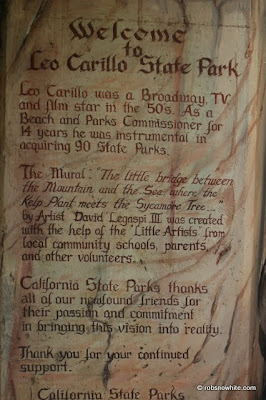 Welcome
to
Leo Carillo State Park
Leo Carillo was a Broadway, TV
and film star in the 50's. As a
Beach and Parks Commissioner for
14 years he was instrumental in
acquiring 90 State Parks.
The Mural: "The little bridge between
the Mountain and the Sea where the
Kelp Plant meets the Sycamore Tree..."
by Artist David Legaspi III was created
with the help of the "Little Artists" from
local community schools, parents,
and other volunteers.
California State Parks thanks
all of our newfound friends for
their passion and commitment
in bringing this vision into reality.
Thank you for your continued
support.
California State Parks
© robsnowhite.com